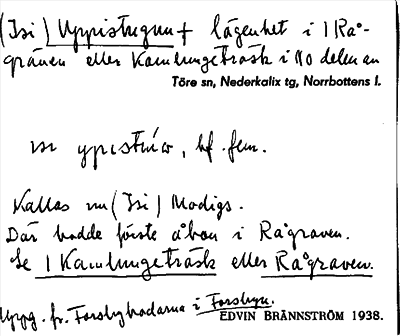 (Isi) Uppistugun + lägenhet i 1 Rå-
gräven eller Kamlungeträsk i NO delen av
Töre sn, Nederkalix tg, Norrbottens l.
bf. fem.
Kallas nu (Isi) Modigs.
Där bodde förste åbon i Rågraven.
Se 1 Kamlungeträsk eller Rågraven.
Uppg. fr. Forsbybodarna i Forsbyn.
EDVIN BRÄNNSTRÖM 1938.